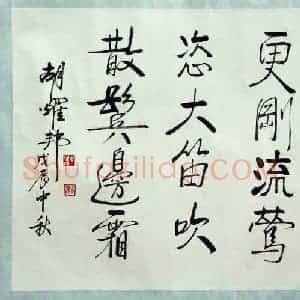 更剛流鶯
恣大笛吹
散鬢邊霜
胡耀邦戊辰中秋